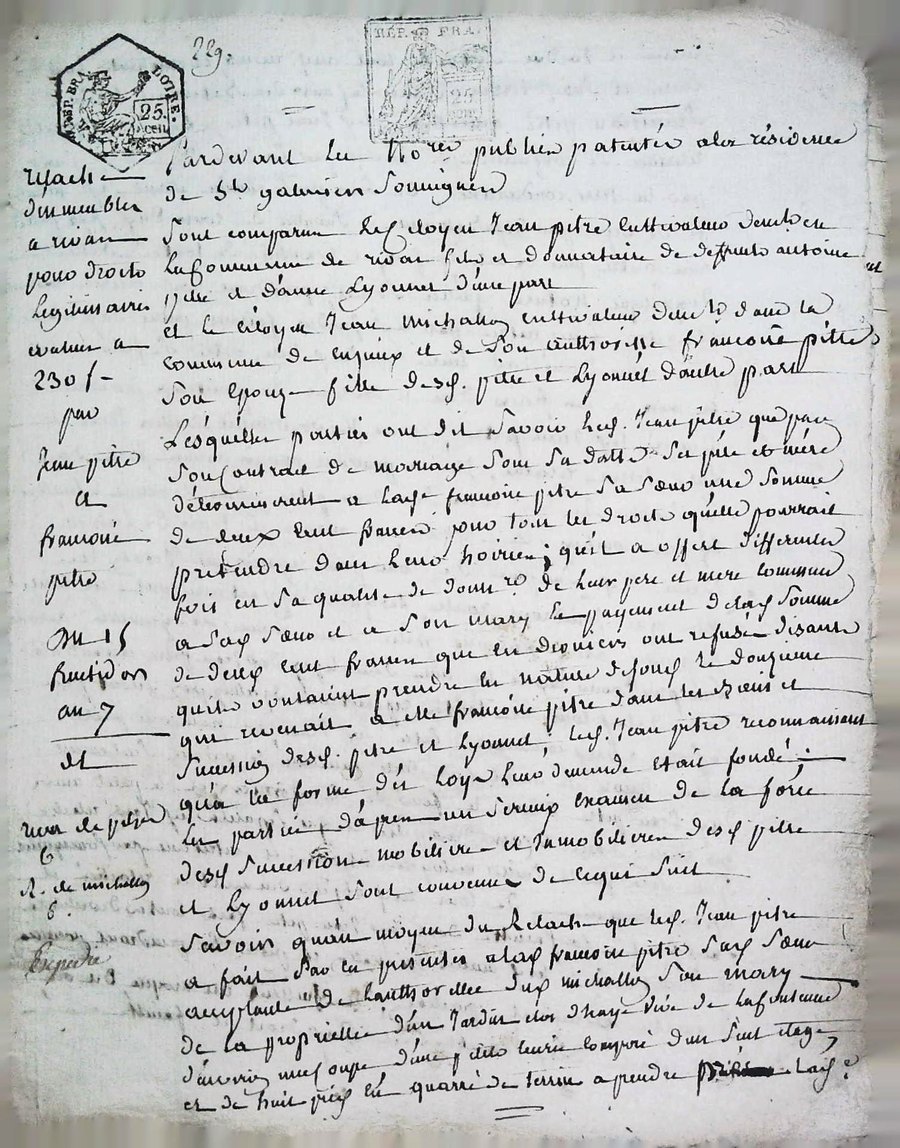 229.
RÉP. FRA.
25
CEN.
LOIRE.
25
CEN.
relache
d'immeubles
a rivas
pour droits
Legitimaires
evalués a
230 f
par
Jean pitre
a
francoise
pitre
Du 15
fructidor
an 7
Pardevant les Nores publics patentés a la résidence
de St galmier Soussignés
Sont comparus Le Citoyen Jean pitre Cultivateur demt en
La Commune de rivas fils et donnataire de deffunts antoine
pitre et d'anne Lyonnet d'une part
et le Citoyen Jean michallon cultivateur demt dans la
commune de et de Son authorisse francoise pitre
Son Epouse fille desd. pitre et Lyonnet d'autre part
Lesquelles parties ont dit Savoir led. Jean pitre que par
Son Contrat de mariage Sous Sa datte Ses père et mère
a lad. francoise pitre Sa Sœur une Somme
de deux Cent francs pour tous les droits qu'elle pourrait
prétendre dans leurs hoiries; qu'il a offert differentes
fois en Sa qualité de donnre de leur pere et mere communs
a Sad. Sœur et a Son mary le payement de lad. Somme
de deux Cent francs que ces derniers ont refusée disants
qu'ils voulaient prendre en nature de fonds le douzieme
qui revenait a elle francoise pitre dans les Biens et
Succession desd. pitre et Lyonnet, led. Jean pitre reconnaissant
qu'a la forme des Loys leur demande etait fondée
Les parties d'apres un Serieux Examen de la force
desd. Succession mobilière et Immobilière desd. pitre
et Lyonnet Sont convenues de Ce qui Suit
Savoir qu'au moyen du Relache que led. Jean pitre
a fait par Ces presentes a lad. francoise pitre Sad. Sœur
acceptante de L'authorité dud. michallon Son mary
de la proprietté d'un Jardin clos d'haye vive de la Contenue
d'environ une Coupe d'une petite Ecurie composé d'un Seul etage
et de huit pieds en quarré de terrin a prendre lad.